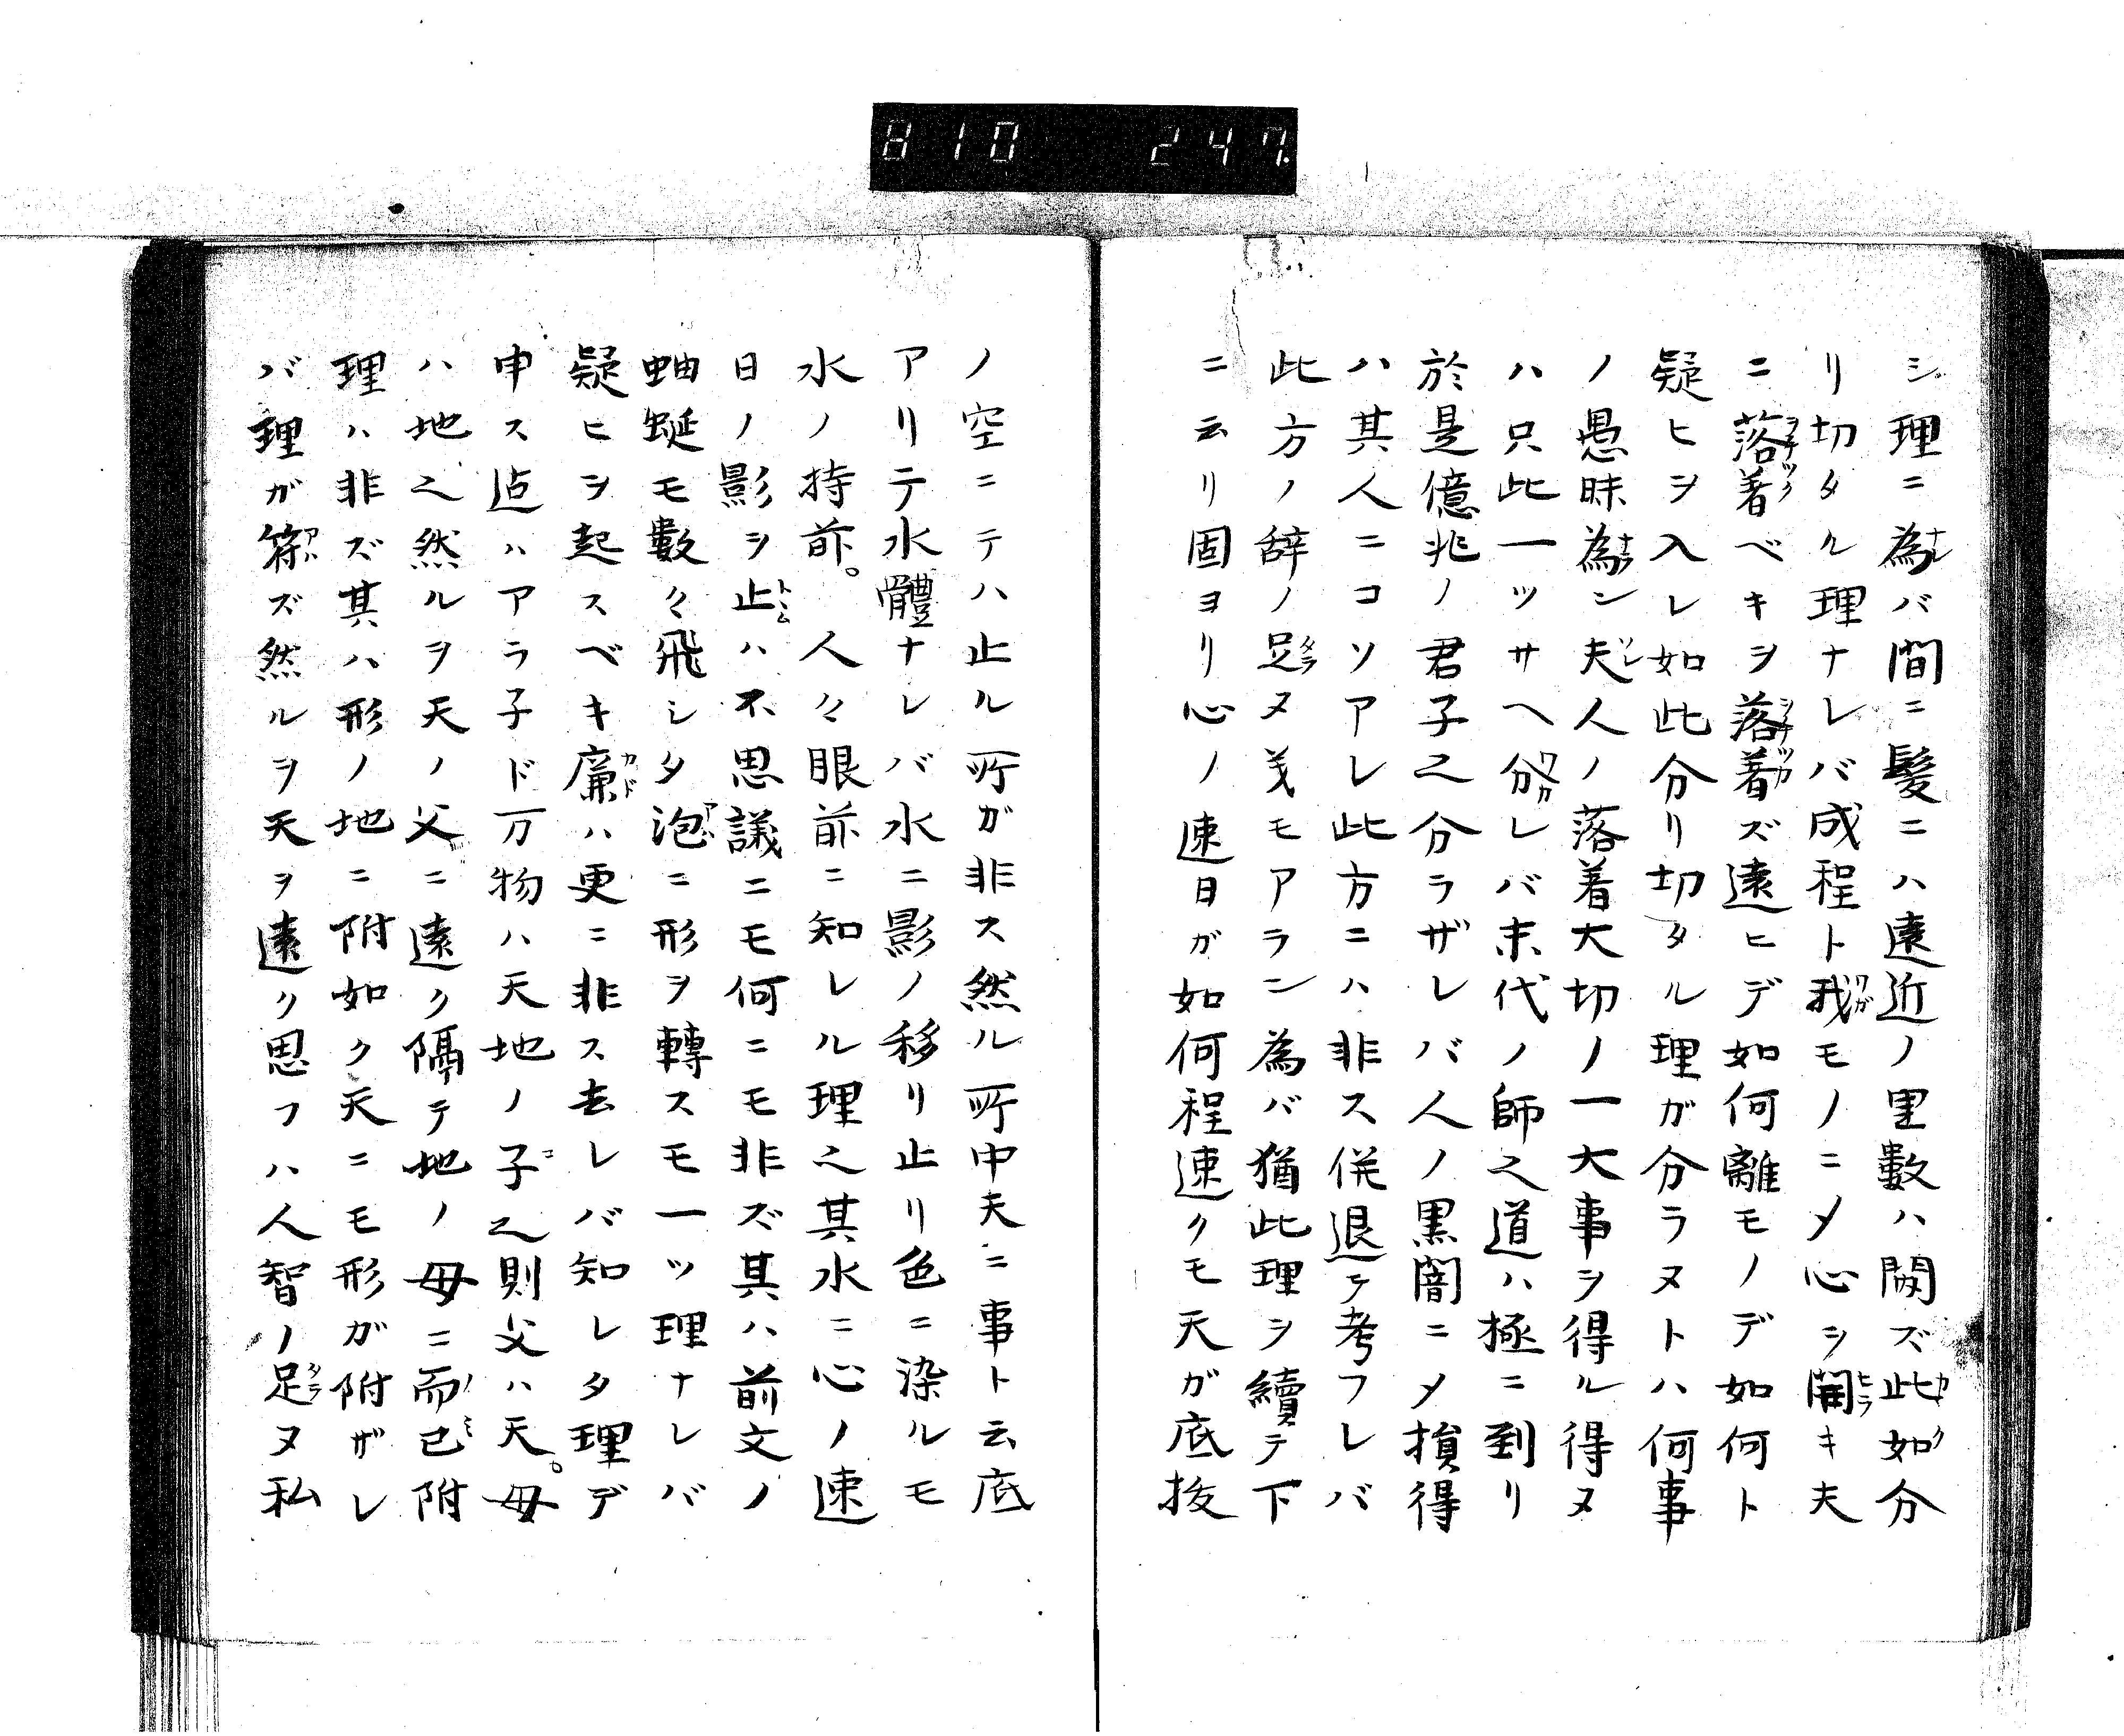 810 247.
シ理ニ為バ間ニ髪ニハ遠近ノ里數ハ関ズ此如分
リ切タル理ナレバ成程ト我モノニメ心ヲ開キ夫
ニ落着ベキヲ落着ズ遠ヒデ如何離モノデ如何ト
疑ヒヲ入レ如此分リ切タル理ガ分ラヌトハ何事
ノ愚昧為ン夫人ノ落着大切ノ一大事ヲ得ル得ヌ
ハ只此一ッサヘ分レバ末代ノ師之道ハ極ニ到リ
於是億兆ノ君子之分ラザレバ人ノ黒闇ニメ損得
ハ其人ニコソアレ此方ニハ非ス併退テ考フレバ
此方ノ辞ノ足ヌ㐧モアラン為バ猶此理ヲ續テ下
ニ云リ固ヨリ心ノ速日ガ如何程速クモ天ガ底抜
ノ空ニテハ止ル所ガ非ス然ル所中夫ニ事ト云底
アリテ水體ナレバ水ニ影ノ移リ止リ色ニ染ルモ
水ノ持前。人々眼前ニ知レル理之其水ニ心ノ速
日ノ影ヲ止ハ不思議ニモ何ニモ非ズ其ハ前文ノ
蚰蜒モ數々飛シタ泡ニ形ヲ轉スモ一ッ理ナレバ
疑ヒヲ起スベキ廉ハ更ニ非ス去レバ知レタ理デ
申ス迠ハアラ子ド万物ハ天地ノ子之則父ハ天。母
ハ地之然ルヲ天ノ父ニ遠ク隔テ地ノ母ニ而已附
理ハ非ズ其ハ形ノ地ニ附如ク天ニモ形ガ附ザレ
バ理ガ符ズ然ルヲ天ヲ遠ク思フハ人智ノ足ヌ私